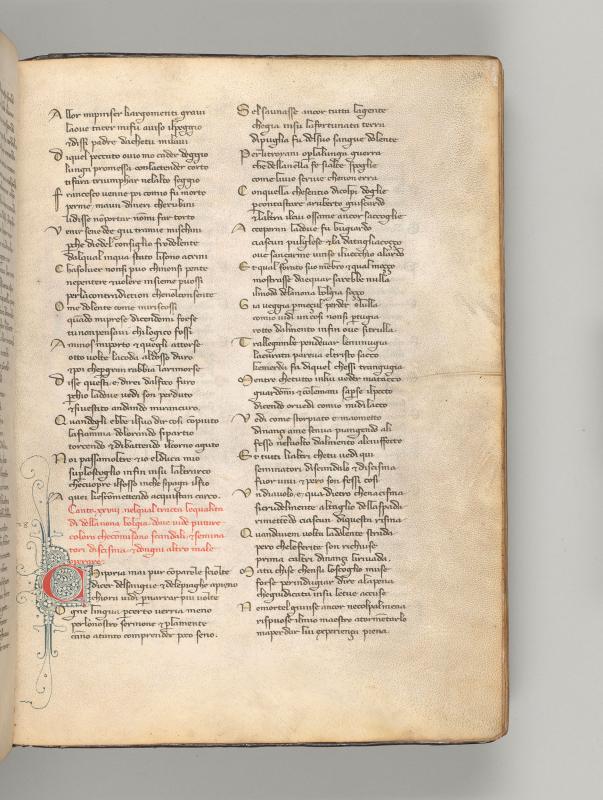 Allor mipinser liargomenti gravi
laove tacer mifu aviso ilpeggio
& dissi padre dachetu milavi
Diquel peccato ovio mo cader deggio
lungi promessa conlattender corto
tifara triumphar nelalto seggio
Francesco venne poi comio fu morto
perme, maun dineri cherubini
lidisse noportar nōmi far torto
Venir senedee qui tramie mischini
pche diedel consiglio frodolente
dalqual inqua stato lisono acrini
Chasolver nonsi puo chinonsi pente
nepentere & volere insieme puossi
perlacontradiction chenolconsente
Ome dolente come miriscossi
quādo miprese dicendomi forse
tu nonpensavi chilogico fossi
Aminos mi porto & quegli attorse
otto volte lacoda aldosso duro
& poi chepgran rabbia lasimorse
Disse questi e direi dalfoco furo
pchio ladove vedi son perduto
& sivestito andando mirancuro.
Quandegli ebbe ilsuo dir cosi cōpiuto
lafiamma dolorando sipartio
torcendo & dibattendo ilcorno aguto
Noi passamoltre & io elduca mio
suplo scoglio infin insu laltrarco
checuopre ilfosso inche sipaga ilfio
A quei kascomettendo acquistan carco.
Canto xxviij. nelqual tracta lequalita
di dellanona bolgia. dove vide punire
coloro checomisono scandali. & semina
tori discisma. & dongni altro male
operare.
Chi poria mai pur cōparole sciolte
dicer delsangue & delepiaghe apieno
chiora vidi pnarrar piu volte
Ogne lingua pcerto verria meno
perlo nostro sermone & plamente
cāno atanto comprender poco seno.
Sel saunasse ancor tutta lagente
che gia insu lafortunata terra
dipuglia fu delsuo sangue dolente
Per litroiani & plalunga guerra
che dellanella fe sialte spoglie
come livio scrive che non erra
Conquella chesentio dicolpi doglie
pcontastare aruberto guiscardo
& laltra ilcui ossame ancor saccoglie
Aceperan ladove fu bugiardo
ciascun pulglese & la datagliacozzo
ove sancarme vinse ilvecchio alardo
Et qual forato suo mēbro & qual mozzo
mostrasse daequar sarebbe nulla
ilmodo delanona bolgia sozzo
Gia veggia pmezul perder o lulla
comio vidi un cosi nonsi ptugia
rotto dalmento infin ove sitrulla.
Tralegambe pendevan leminugia
lacorata pareva eltristo sacco
kemerda fa diquel chessi trangugia
Mentre chetutto inlui veder mattacco
guardōmi & colemani saperse ilpecto
dicendo or vedi comio midilacco
Vedi come storpiato e maometto
dinanzi ame senva piangendo ali
fesso nelvolto dalmento alciuffetto
Et tutti lialtri chetu vedi qui
seminatori discandalo & discisma
fuor vivi & pero son fessi cosi
Un diavolo e qua dietro chenacisma
sicrudelmente altaglio dellaspada
rimettēdo ciascun diquesta risma
Quandavem volta ladolente strada
pero cheleferite son richiuse
prima caltri dinanzi lirivada.
Matu chise chensu loscoglio muse
forse perindugiar dire alapena
che giudicata insu letue accuse
Ne mortel giunse ancor necolpalmena
rispuose ilmio maestro atormentarlo
maperdar lui experienza piena.